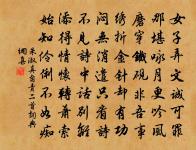 女子弄文誠可罪
那堪詠月更吟風
磨穿鐵硯非吾事
繡折金針却有功
悶無消遣只看詩
不見詩中話別離
添得情懷轉蕭索
始知伶俐不如痴
朱淑真自責二首詞典
網喜